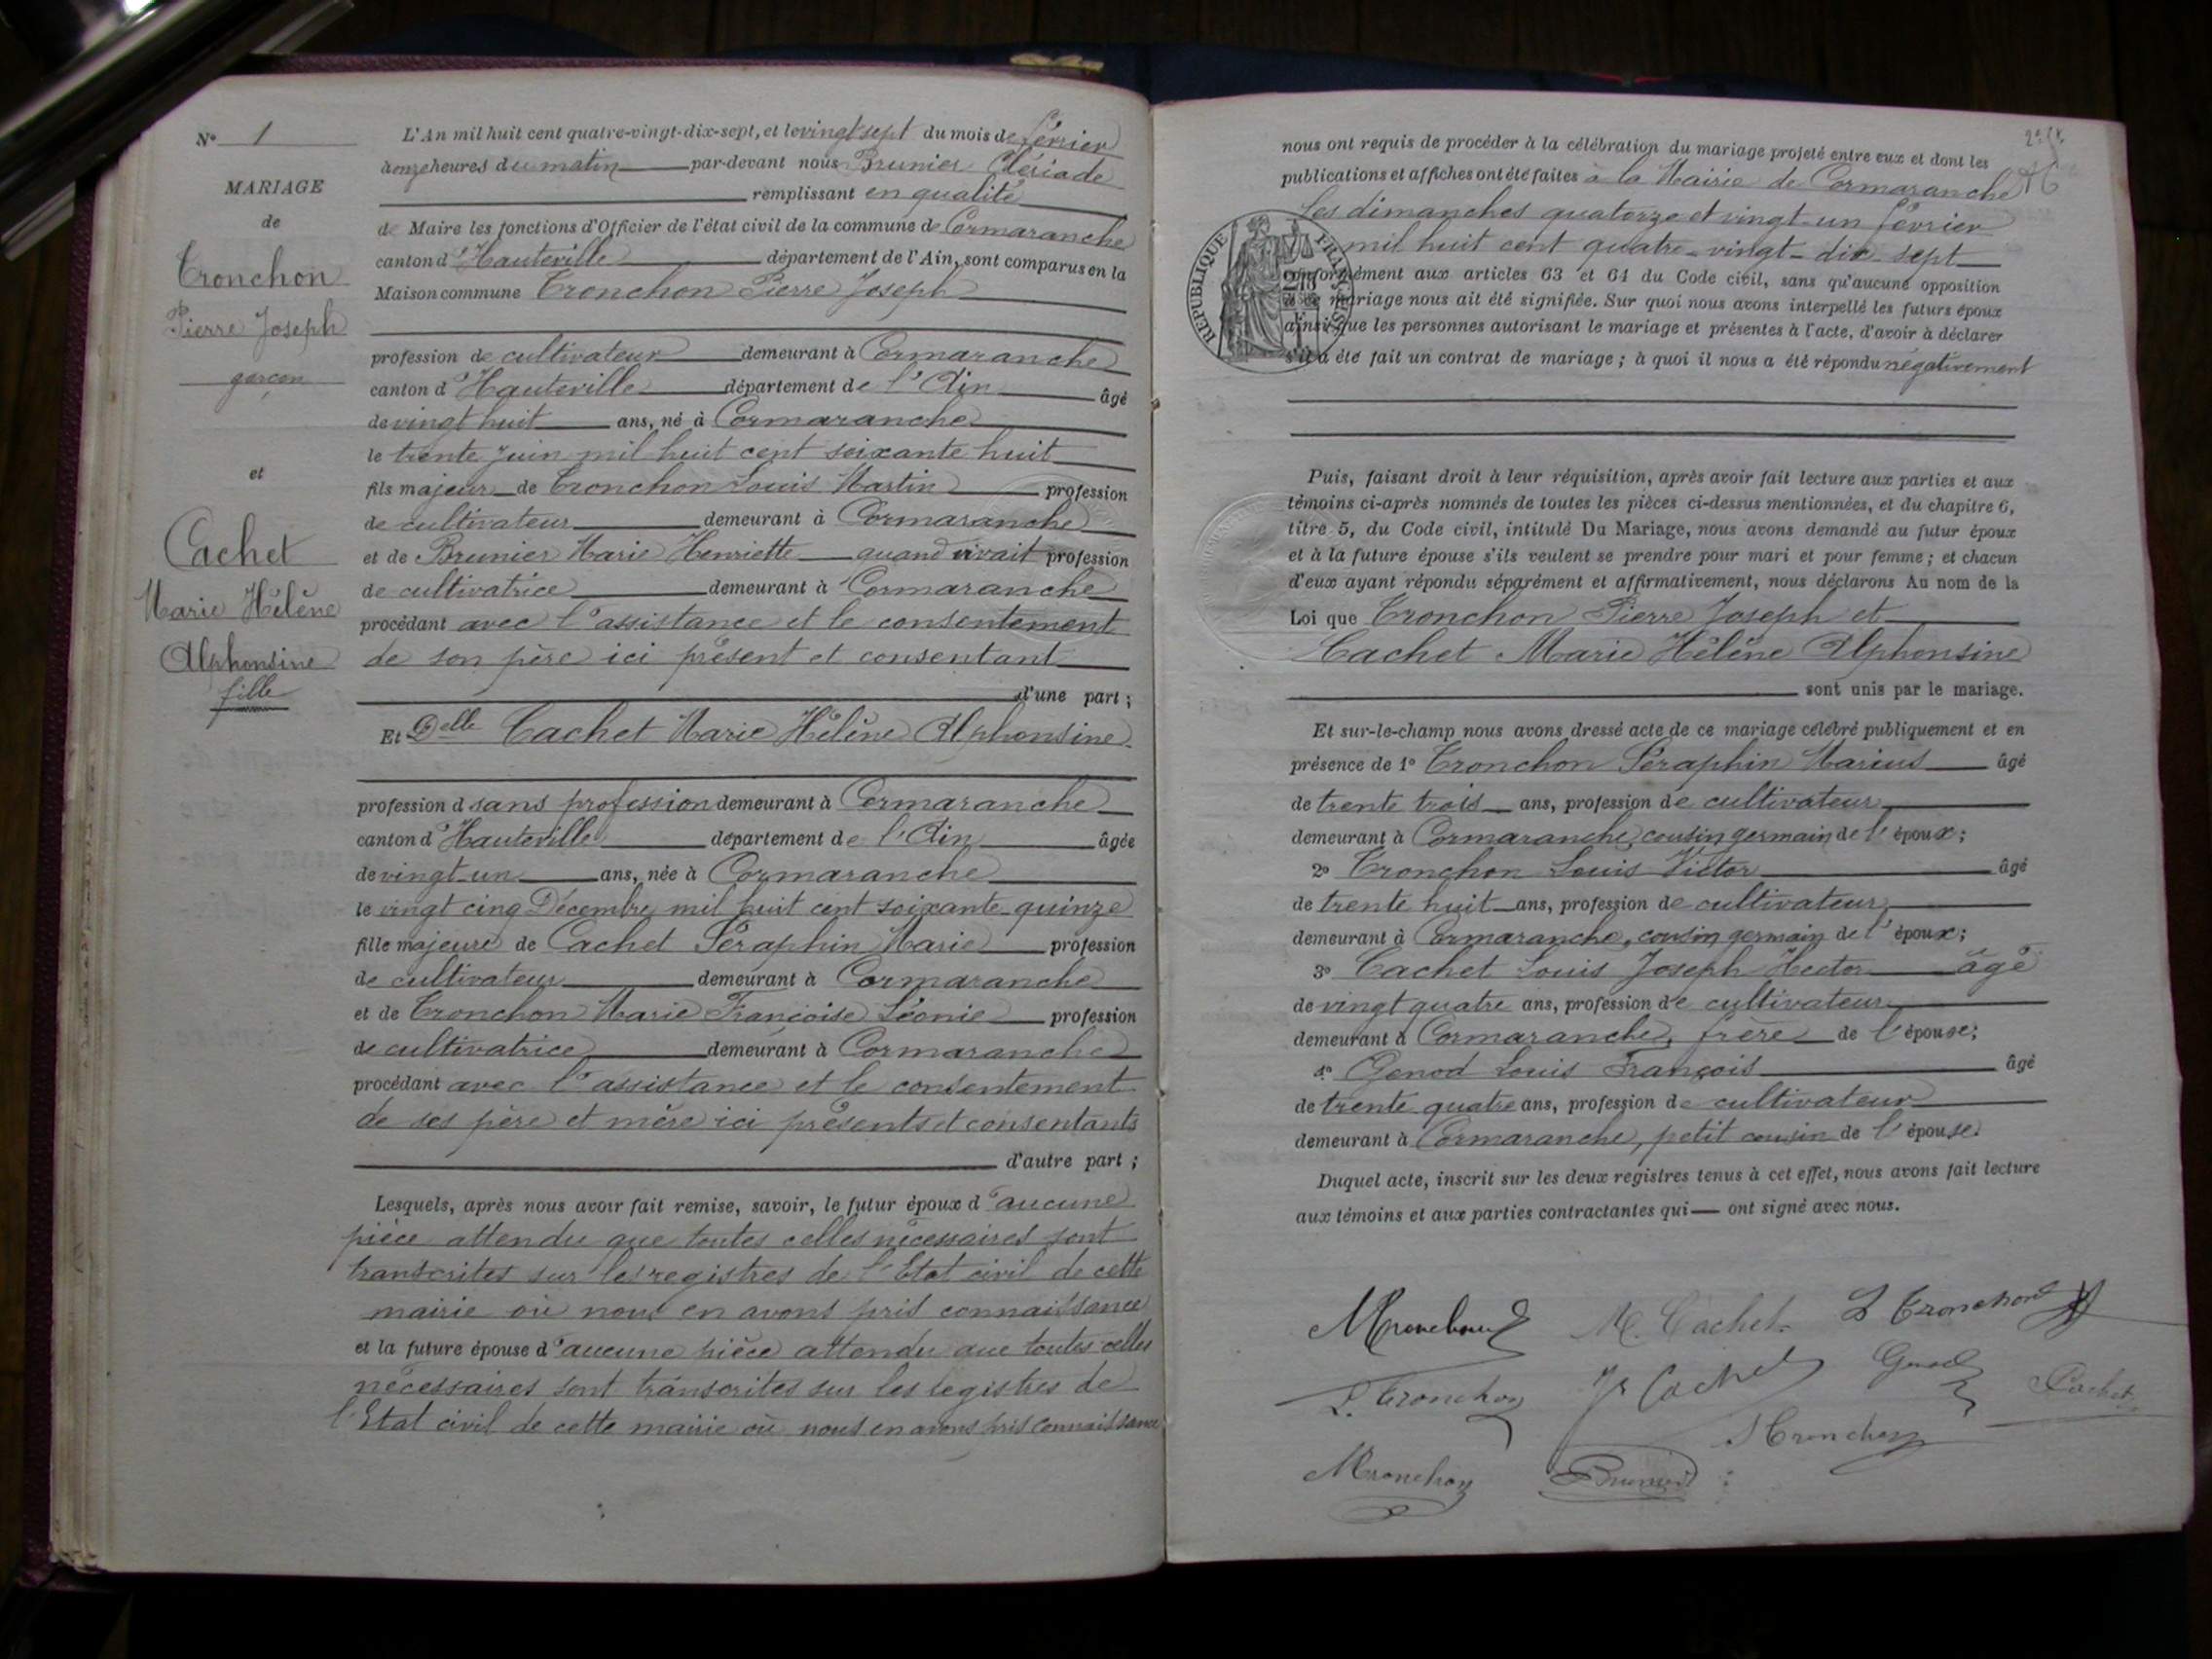 N° 1
MARIAGE
de
Tronchon
Pierre Joseph
garçon
et
Cachet
Marie Hélène
Alphonsine
fille
L'An mil huit cent quatre-vingt-dix-sept, et le vingt sept du mois de février
à onze heures du matin par-devant nous Brunier Cloriade
remplissant en qualité
de Maire les fonctions d'Officier de l'état civil de la commune de Cormaranche
canton d'Hauteville département de l'Ain, sont comparus en la
Maison commune Tronchon Pierre Joseph
profession de cultivateur demeurant à Cormaranche
canton d'Hauteville département de l'Ain âgé
de vingt huit ans, né à Cormaranche
le trente juin mil huit cent soixante huit
fils majeur de Tronchon Louis Martin profession
de cultivateur demeurant à Cormaranche
et de Brunier Marie Henriette quand vivait profession
de cultivatrice demeurant à Cormaranche
procédant avec l'assistance et le consentement
de son père ici présent et consentant
d'une part ;
Et Delle Cachet Marie Hélène Alphonsine
profession d sans profession demeurant à Cormaranche
canton d'Hauteville département de l'Ain âgée
de vingt un ans, née à Cormaranche
le vingt cinq Décembre mil huit cent soixante quinze
fille majeure de Cachet Séraphin Marie profession
de cultivateur demeurant à Cormaranche
et de Tronchon Marie Françoise Léonie profession
de cultivatrice demeurant à Cormaranche
procédant avec l'assistance et le consentement
de ses père et mère ici présents et consentants
d'autre part ;
Lesquels, après nous avoir fait remise, savoir, le futur époux d'aucune
pièce attendu que toutes celles nécessaires sont
transcrites sur les registres de l'Etat civil de cette
mairie où nous en avons pris connaissance
et la future épouse d'aucune pièce attendu que toutes celles
nécessaires sont transcrites sur les registres de
l'Etat civil de cette mairie où nous en avons pris connaissance
nous ont requis de procéder à la célébration du mariage projeté entre eux et dont les
publications et affiches ont été faites à la Mairie de Cormaranche
les dimanches quatorze et vingt-un février
mil huit cent quatre-vingt-dix-sept
conformément aux articles 63 et 64 du Code civil, sans qu'aucune opposition
à ce mariage nous ait été signifiée. Sur quoi nous avons interpellé les futurs époux
ainsi que les personnes autorisant le mariage et présentes à l'acte, d'avoir à déclarer
s'il a été fait un contrat de mariage ; à quoi il nous a été répondu négativement
RÉPUBLIQUE FRANÇAISE
Puis, faisant droit à leur réquisition, après avoir fait lecture aux parties et aux
témoins ci-après nommés de toutes les pièces ci-dessus mentionnées, et du chapitre 6,
titre 5, du Code civil, intitulé Du Mariage, nous avons demandé au futur époux
et à la future épouse s'ils veulent se prendre pour mari et pour femme ; et chacun
d'eux ayant répondu séparément et affirmativement, nous déclarons Au nom de la
Loi que Tronchon Pierre Joseph et
Cachet Marie Hélène Alphonsine
sont unis par le mariage.
Et sur-le-champ nous avons dressé acte de ce mariage célébré publiquement et en
présence de 1° Tronchon Séraphin Marius âgé
de trente trois ans, profession de cultivateur,
demeurant à Cormaranche, cousin germain de l'époux ;
2° Tronchon Louis Victor âgé
de trente huit ans, profession de cultivateur,
demeurant à Cormaranche, cousin germain de l'époux ;
3° Cachet Louis Joseph Hector âgé
de vingt quatre ans, profession de cultivateur
demeurant à Cormaranche, frère de l'épouse ;
4° Genod Louis François âgé
de trente quatre ans, profession de cultivateur
demeurant à Cormaranche, petit cousin de l'épouse.
Duquel acte, inscrit sur les deux registres tenus à cet effet, nous avons fait lecture
aux témoins et aux parties contractantes qui ont signé avec nous.
M. Cachet L Tronchon
L. Tronchon Cachet Genod Cachet
Tronchon
Brunier